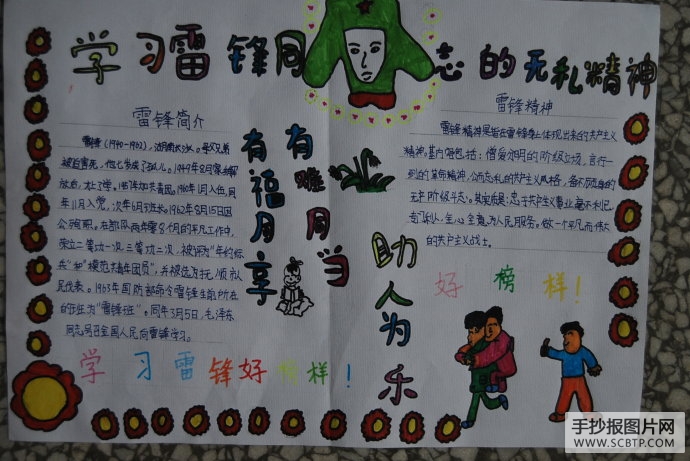 学习雷锋同志的无私精神
雷锋简介
雷锋(1940-1962),湖南长沙人。
解放后,上了学,1957年加共青团。1960年1月入伍,同
年11月入党,次年6月任班长。1962年8月15日因
公殉职。在部队两年零8个月的平凡工作中,
荣立二等功一次,三等功二次,被评为"年约标
兵"和"模范共青年团员",并被选为抚顺市人
民代表。1963年国防部命令雷锋生前所在
的班为"雷锋班"。同年3月5日,毛泽东
同志号召全国人民向雷锋学习。
有福同享
有难同当
雷锋精神
雷锋精神是指在雷锋身上体现出来的共产主义
精神,基内容包括:憎爱分明的阶级立场,言行一
致的革命精神,公而忘私的共产主义风格,奋不顾身的
无产阶级斗志。其实质是:忠于共产主义事业毫不利己
专门利人,全心全意为人民服务。做一个平凡而伟大
的共产主义战士。
助人为乐
好榜样!
学习雷锋好榜样!
手抄报图片网
WWW.SCBTP.COM